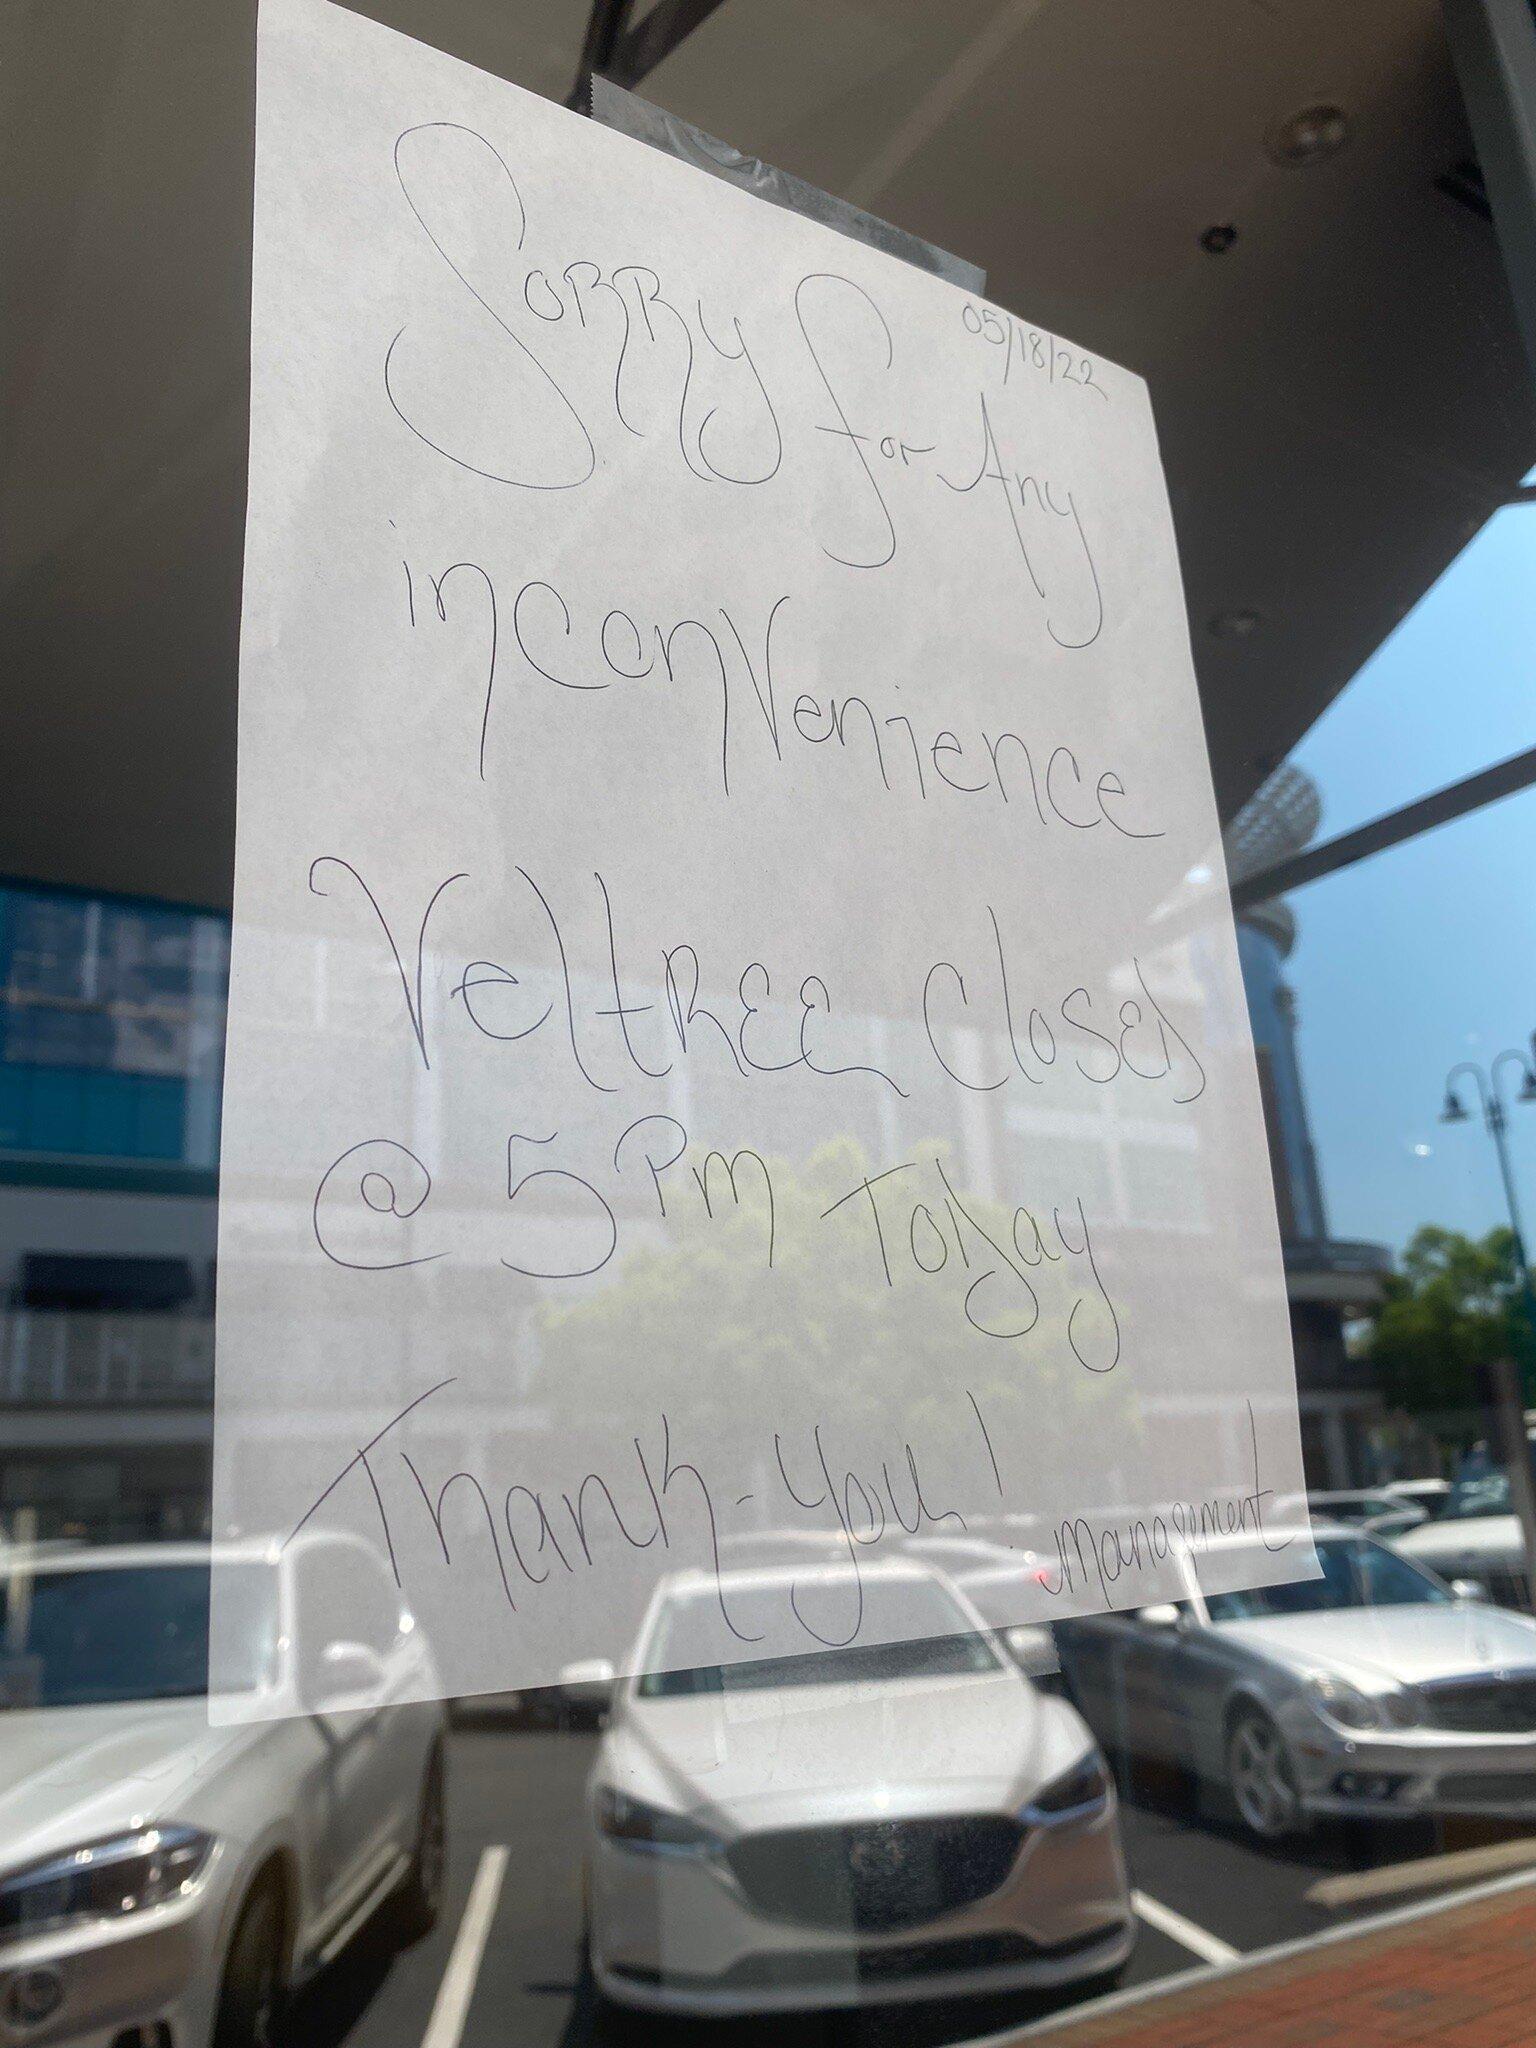 05/18/22
Sorry for Any
inconvenience
Veltree Closed
@ 5 Pm Today
Thank-you!
management